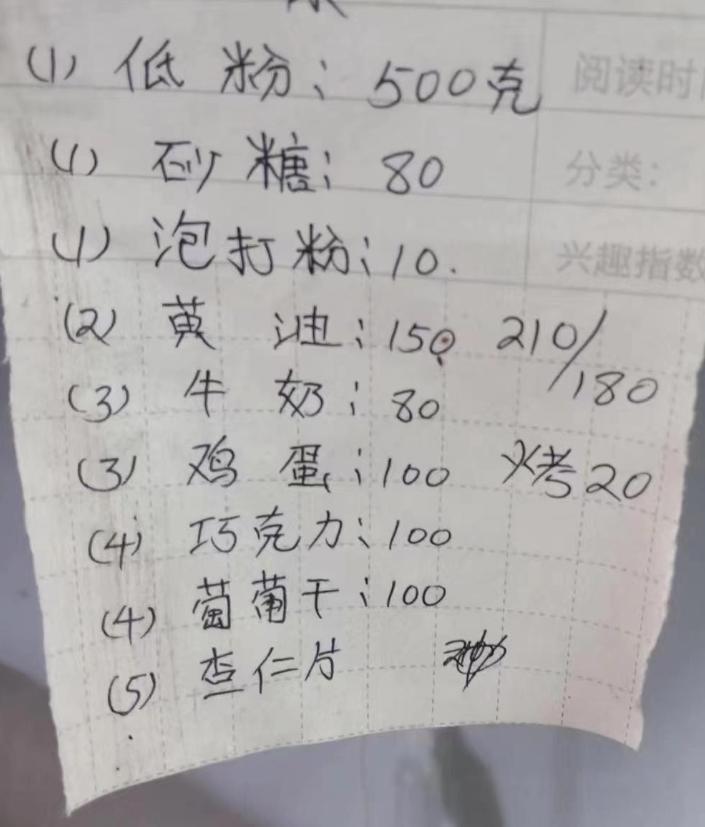 (1) 低粉: 500克
阅读时
(1) 砂糖: 80
分类:
(1) 泡打粉: 10.
兴趣指数
(2) 黄油: 150 210/180
(3) 牛奶: 80
(3) 鸡蛋: 100 烤20
(4) 巧克力: 100
(4) 葡葡干: 100
(5) 杏仁片